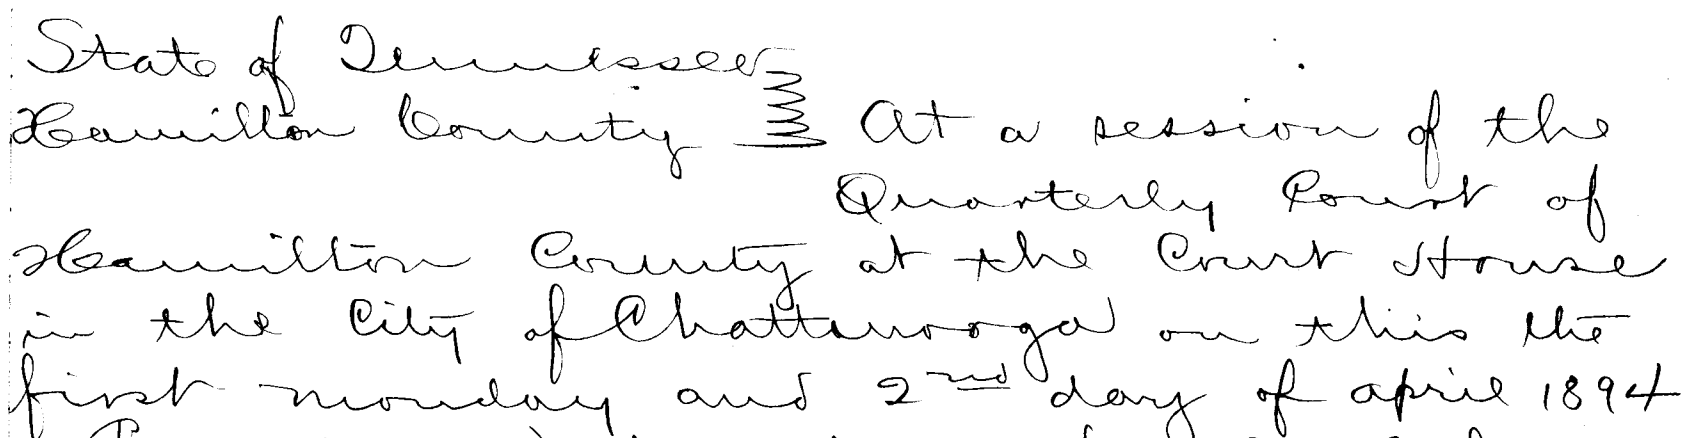 State of Tennessee
Hamilton County At a session of the
Quarterly Court of
Hamilton County at the Court House
in the City of Chattanooga on this the
first monday and 2nd day of april 1894